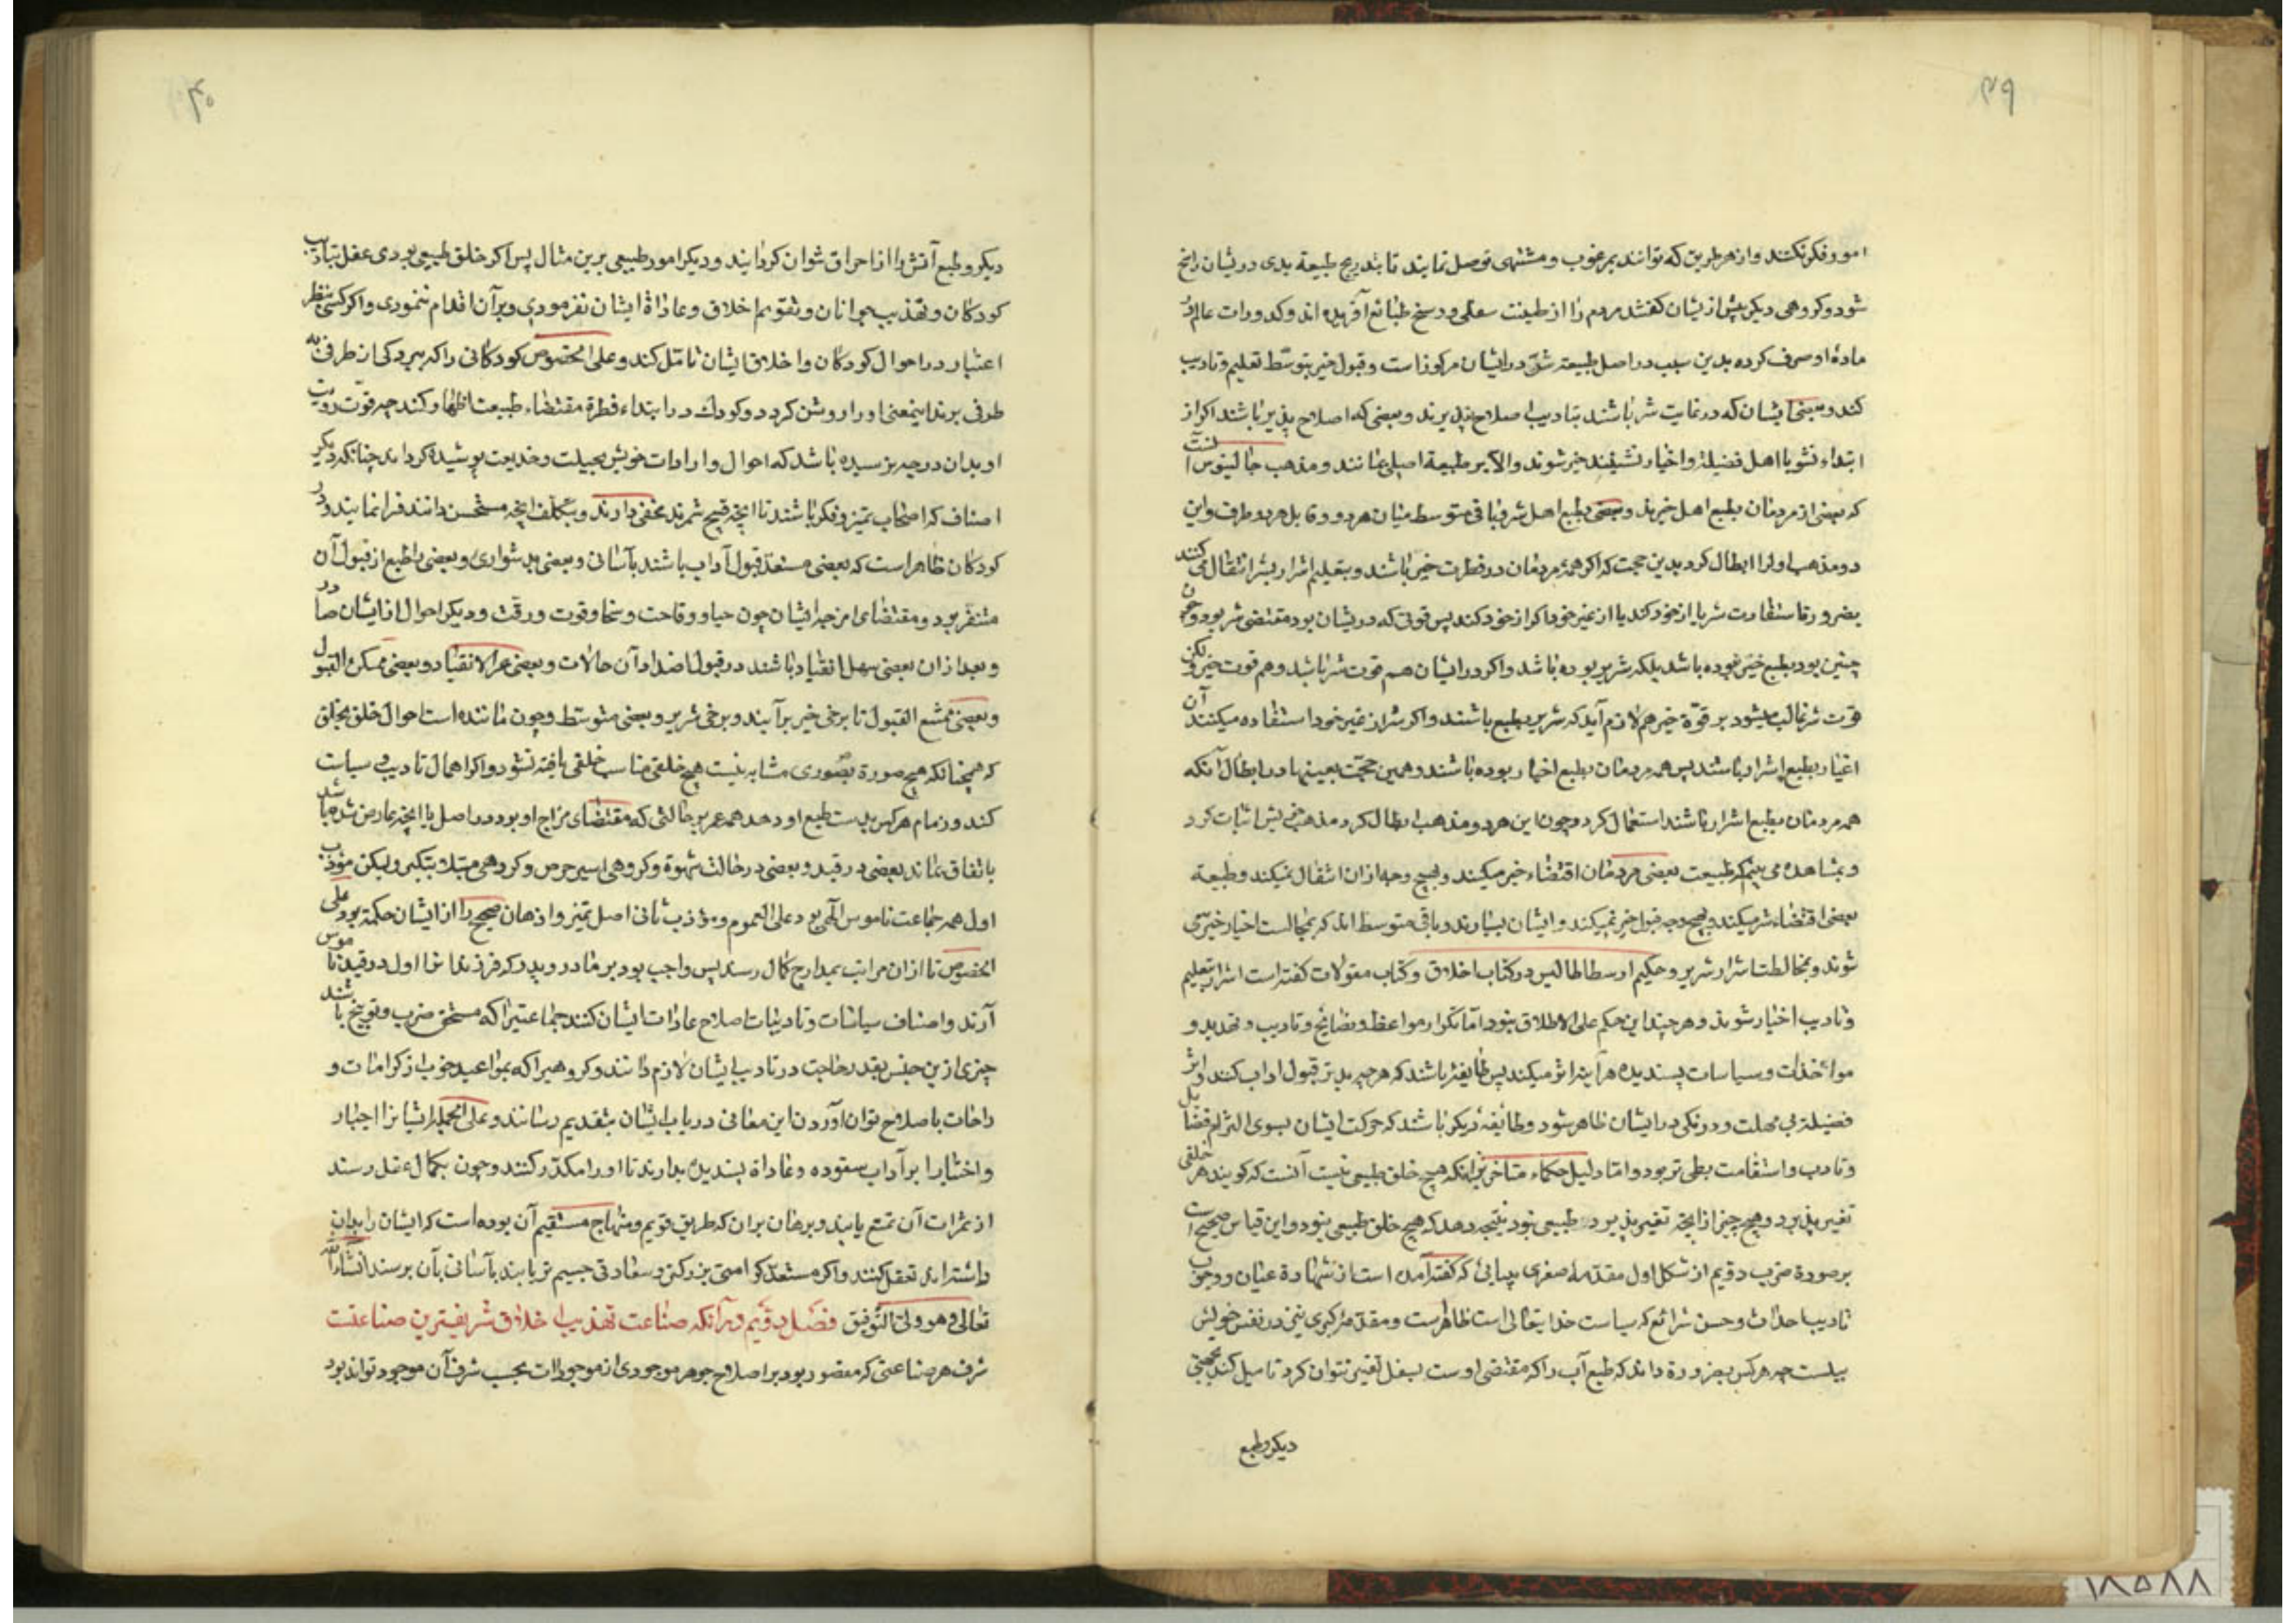 ۳۹
امور فکر نکنند و از هر طریق که توانند بمرغوب و مشتهی توصل نمایند تا بتدریج طبیعة بدی در یشان راسخ
شود و کروهی دیکر پیش از یشان کفتند مردم را از طینت سفلی و وسخ طبائع آفریده اند و کدورات عالم در
مادهٔ او صرف کرده بدین سبب در اصل طبیعة شرّ در ایشان مرکوز است و قبول خیر بتوسّط تعلیم و تادیب
کند و بعضی ایشان که در غایت شر باشند بتادیب اصلاح نپذیرند و بعضی که اصلاح پذیر باشند اکر از
ابتداء نشو با اهل فضیلة و اخیار نشینند خیر شوند و الا بر طبیعة اصلی بمانند و مذهب جالینوس آنست
که بعضی از مردمان بطبع اهل خیرند و بعضی بطبع اهل شر و باقی متوسط میان هر دو و قابل هر دو طرف و این
دو مذهب اول را ابطال کرد بدین حجت که اکر همهٔ مردمان در فطرت خیر باشند و بتعلیم اشرار بشر انتقال می کنند
بضرورة استفادت شر یا از خود کند یا از غیر خود اکر از خود کند پس قوتی که در یشان بود مقتضی شر بود و چون
چنین بود بطبع خیر نبوده باشد بلکه شریر بوده باشد و اکر در ایشان هم قوت شر باشد و هم قوت خیر و لکن
قوت شر غالب میشود بر قوّة خیر هم لازم آید که شریر بطبع باشند و اکر شر از غیر خود استفاده میکنند آن
اغیار بطبع اشرار باشند پس همه مردمان بطبع اخیار بوده باشند و همین حجّت بعینها در ابطال آنکه
همه مردمان بطبع اشرار باشند استعمال کرد و چون این هر دو مذهب ابطال کرد مذهب خویش اثبات کرد
و بمشاهده می بینم که طبیعت بعضی مردمان اقتضاء خیر میکیند و بهیچ وجه از ان انتقال نمیکند و طبیعة
بعضی اقتضاء شر میکیند و بهیچ وجه قبول خیر نمیکند و ایشان بسیارند و باقی متوسط اند که بمجالست اخیار خیر می
شوند و بمخالطت اشرار شریر و حکیم ارسطاطالیس در کتاب اخلاق و کتاب مقولات کفته است اشرار بتعلیم
و تادیب اخیار شوند و هر چند این حکم علی الاطلاق نبود امّا تکرار مواعظ و نصایح و تادیب و تهذیب و
مواخذات و سیاسات پسندیده هر آینه اثر میکند پس طایفهٔ باشند که هر چه بدتر قبول اداب کنند و اثر
فضیلة بی مهلت و درنکی در ایشان ظاهر شود و طائیفهٔ دیکر باشد که حرکت ایشان بسوی التزام فضایل
و تادب و استقامت بطی تر بود و امّا دلیل حکماء متاخر بر آنکه هیچ خلق طبیعی نیست آنست که کویند هر خلقی
تغییر پذیرد و هیچ چیز از آنچه تغیر پذیرد طبیعی نبود نتیجه دهد که هیچ خلق طبیعی نبود و این قیاس صحیح است
بر صورة ضرب دوّیم از شکل اول مقدمهٔ صغری ببیانی که کفته آمده است از شهادة عیان و وجوب
تادیب احداث و حسن شرائع که سیاست خدایتعالی است ظاهرست و مقدمهٔ کبری نیز در نفس خویش
بینست چه هر کس بضرورة داند که طبع آب را که مقتضی اوست بسفل تغییر نتوان کرد تا میل کند بجهتی
دیکر و طبع
۴۰
دیکر و طبع آتش را از احراق نتوان کردانید و دیکر امور طبیعی برین مثال پس اکر خلق طبیعی بودی عقل بتادیب
کودکان و تهذیب جوانان و تقویم اخلاق و عاداة ایشان نفرمودی و بر آن اقدام ننمودی و اکر کسی بنظر
اعتبار در احوال کودکان و اخلاق ایشان تامّل کند و علی الخصوص کودکانی را که ببردکی از طرفی به
طرفی برند اینمعنی او را روشن کردد و کودک در ابتداء فطرة مقتضاء طبیعت اظهار کند چه قوّت رویّت
او بدان درجه نرسیده باشد که احوال و ارادات خویش بحیلت و خدیعت پوشیده کرداند چنانکه دیکر
اصناف که اصحاب تمیز و فکر باشند تا آنچه قبیح شمرند مخفی دارند و بتکلّف آنچه مستحسن دانند فرا نمایند و در
کودکان ظاهر است که بعضی مستعدّ قبول آداب باشند بآسانی و بعضی بدشواری و بعضی را طبع از قبول آن
متنفّر بود و مقتضای امزجهٔ ایشان چون حیا و وقاحت و سخا و قوت و رقّت و دیکر احوال از ایشان صادر
و بعد از ان بعضی سهل انقیاد باشند در قبول اضداد آن حالات و بعضی عسر الانقیاد و بعضی ممکن القبول
و بعضی ممتنع القبول تا برخی خیر برآیند و برخی شریر و بعضی متوسّط و چون ماننده است احوال خلق بخلق
که همچنانکه هیچ صورة بصوری مشابه نیست هیچ خلقی مناسب خلقی یافته نشود و اکر اهمال تادیب و سیاست
کنند و زمام هر کس بدست طبع او دهد همه عمر بر حالتی که مقتضای مزاج او بود در اصل یا آنچه عارض شده باشد
باتفاق بماند بعضی در قید و بعضی در حالت شهوة و کروهی اسیر حرص و کروهی مبتلا بتکبر و لیکن مؤدّب
اول همه جماعت ناموس الهی بود علی العموم و مؤدّب ثانی اصل تمیز و اذهان صحیح را از ایشان حکمة بود علی
الخصوص تا از ان مراتب بمدارج کمال رسند پس واجب بود بر مادر و پدر که فرزندانرا اول در قید ناموس
آرند و اصناف سیاسات و تادیبات اصلاح عادات ایشان کنند جماعتیرا که مستحق ضرب و توبیخ باشند
چیزی ازین جنس بقدر حاجت در تادیب ایشان لازم دانند و کروهیرا که بمواعید خوب از کرامات و
راحات باصلاح توان آورد ن این معانی در باب ایشان بتقدیم رسانند و علی الجمله ایشانرا اجبار
و اختیارا بر آداب ستوده و عاداة پسندیده بدارند تا او را مکدّر کنند و چون بکمال عقل رسند
از ثمرات آن تمتع یابند و برهان بران که طریق قویم و منهاج مستقیم آن بوده است که ایشان را بدان
داشته اند تعقل کنند و اکر مستعدّ کرامتی بزرکتر و سعادتی جسیم تر یابند بآسانی بآن برسند انشاء الله
تعالی و هو ولی التوفیق فصل دوّیم در آنکه صناعت تهذیب اخلاق شریفترین صناعتست
شرف هر صناعتی که مقصور بود بر اصلاح جوهر موجودی از موجودات بحسب شرف آن موجود تواند بود
۱۸۵۸۸